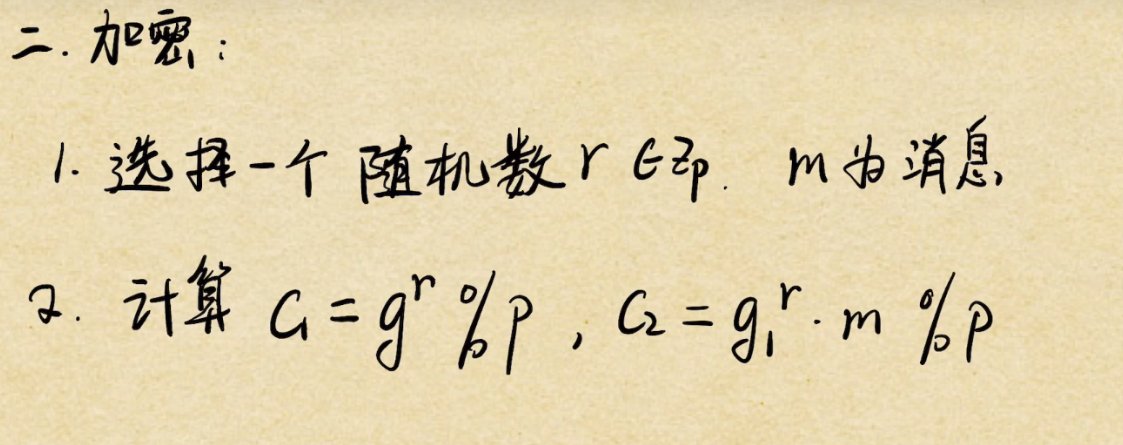 二. 加密:
1. 选择一个 随机数 r ∈ Zp. m为消息
2. 计算 C₁ = gʳ % p , C₂ = g₁ʳ · m % p